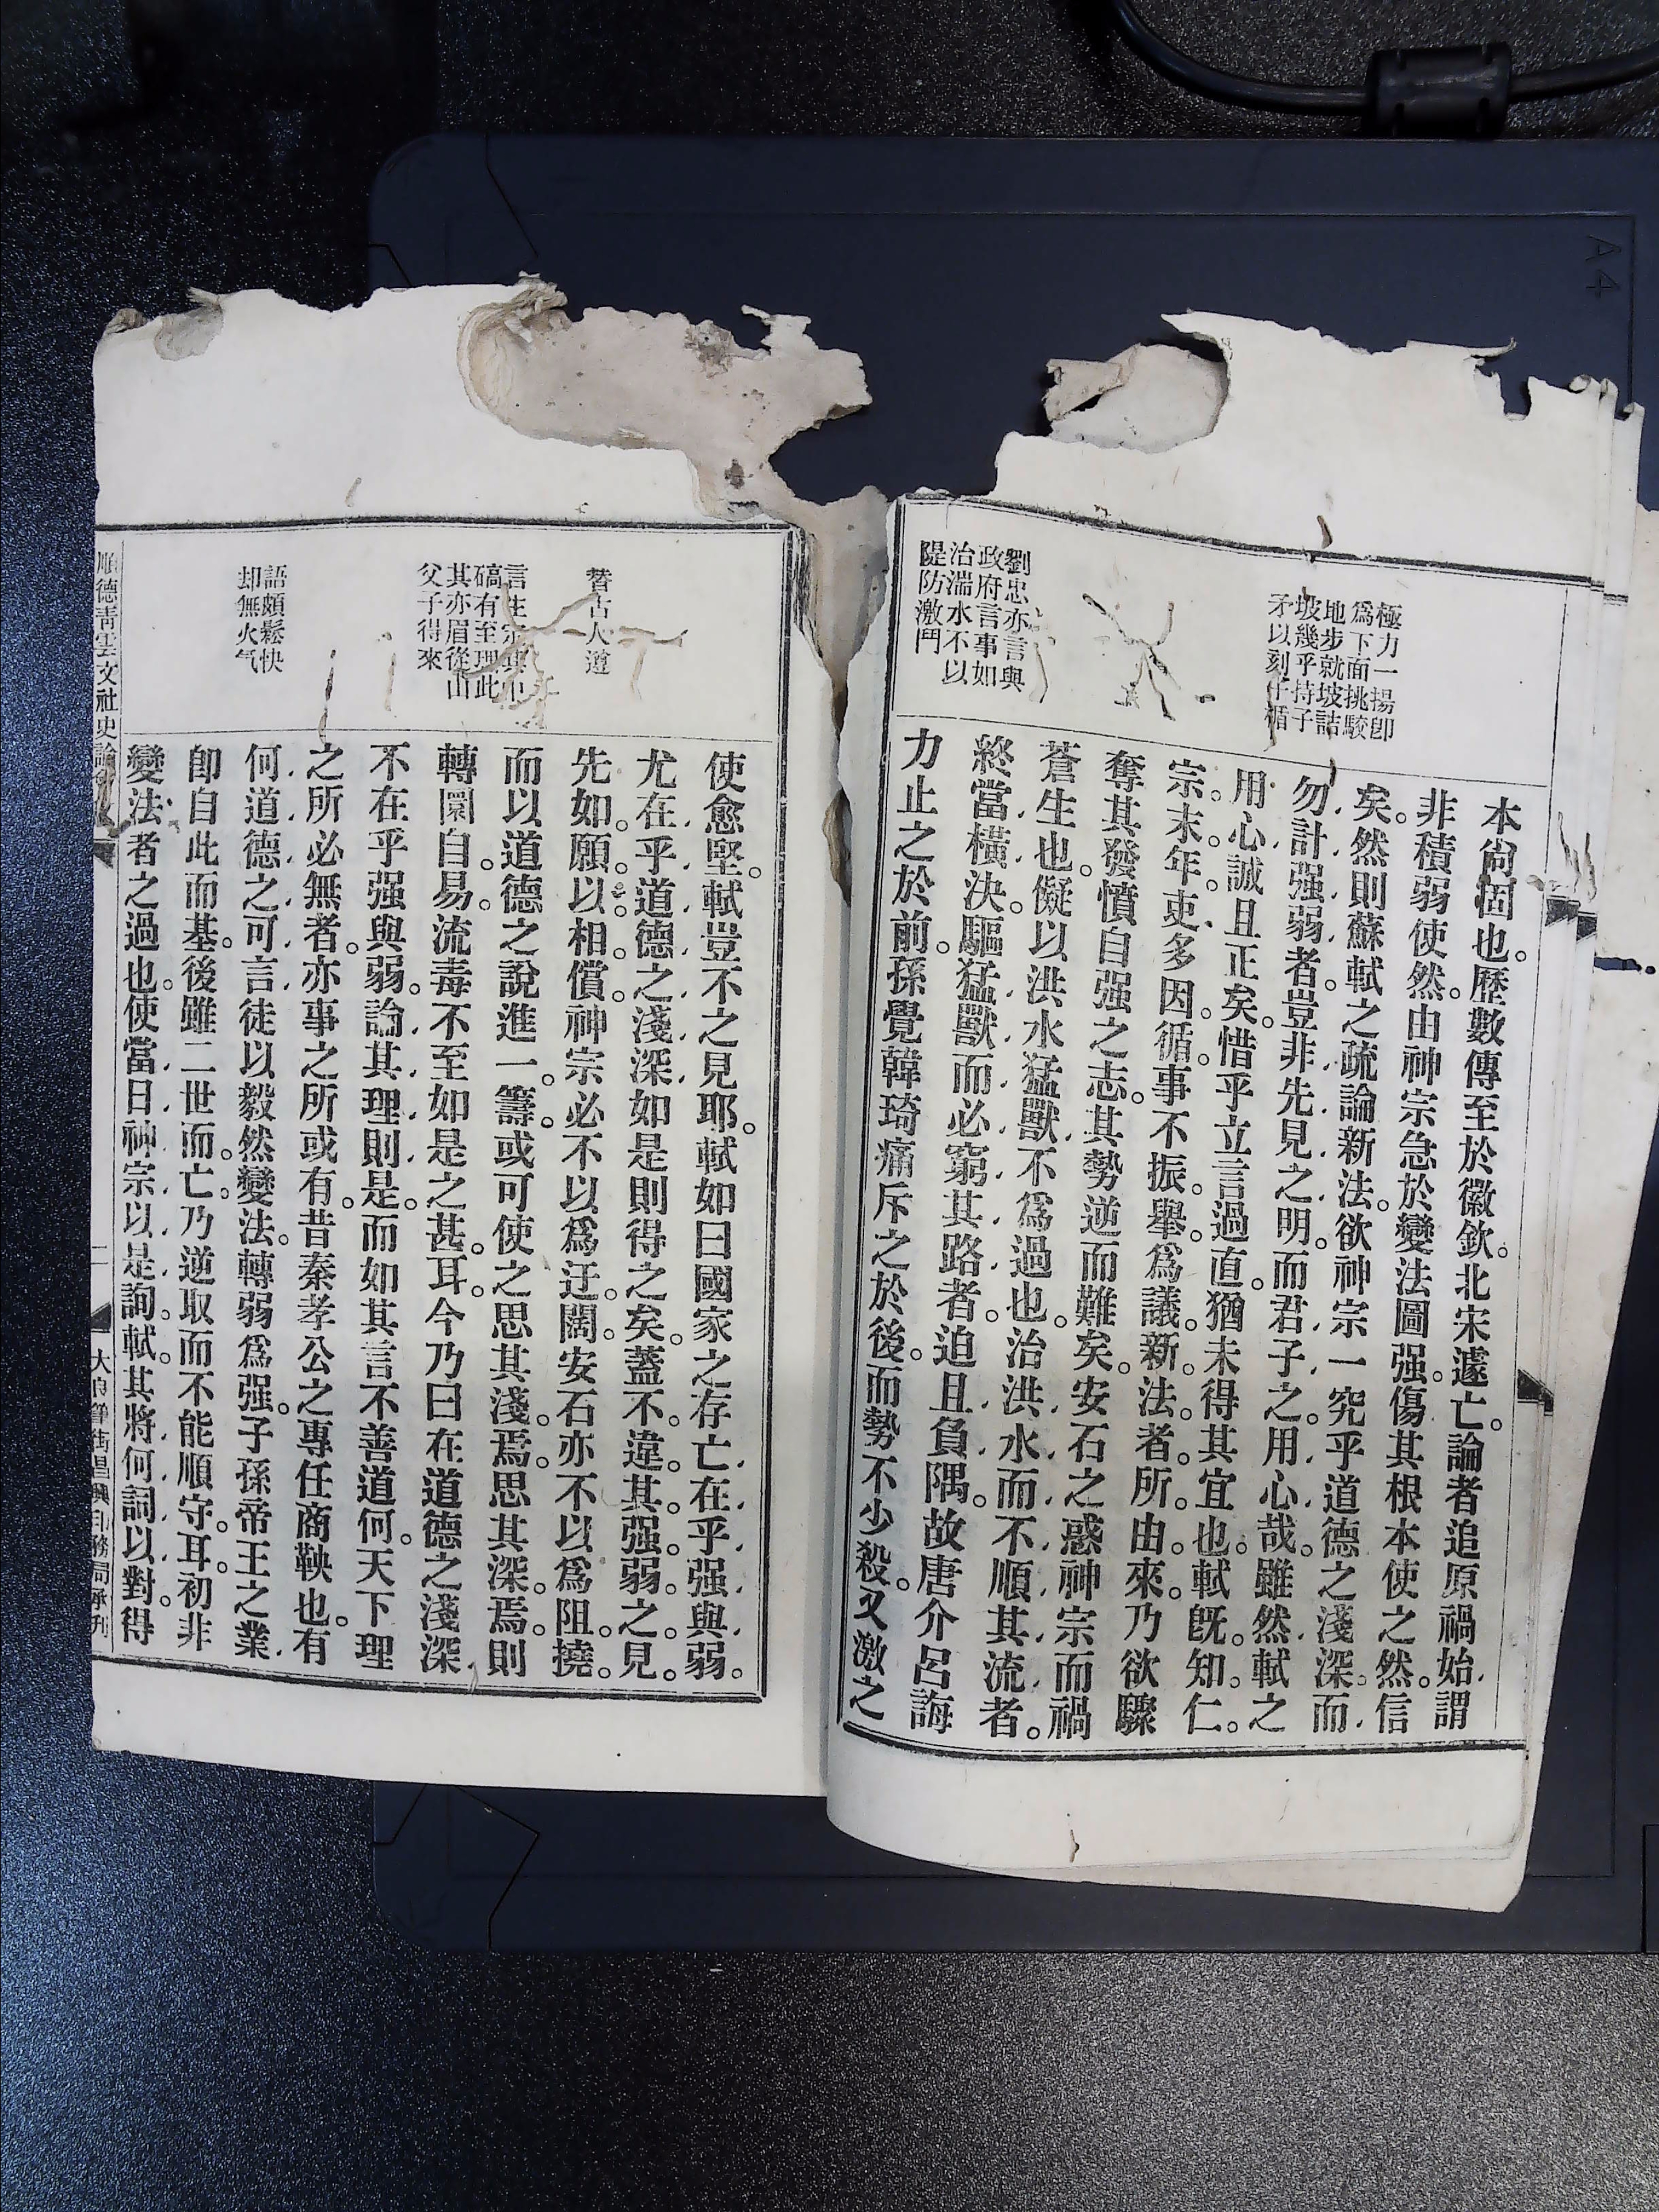 極力一揚卽
爲下面挑駮
地步就坡詰
坡幾乎持子
矛以刻子循
劉忠亦言與
政府言事如
治湍水不以
隄防激鬥
本尙固也。歷數傳至於徽欽。北宋遽亡。論者追原禍始。謂
非積弱使然。由神宗急於變法圖强。傷其根本使之然。信
矣。然則蘇軾之疏論新法。欲神宗一究乎道德之淺深。而
勿計强弱者。豈非先見之明。而君子之用心哉。雖然。軾之
用心誠且正矣。惜乎立言過直。猶未得其宜也。軾旣知仁
宗末年。吏多因循。事不振舉。爲議新法者所由來。乃欲驟
奪其發憤自强之志。其勢逆而難矣。安石之惑神宗而禍
蒼生也。儗以洪水猛獸不爲過也。治洪水而不順其流者。
終當橫決。驅猛獸而必窮其路者。迫且負隅。故唐介呂誨
力止之於前。孫覺韓琦痛斥之於後。而勢不少殺。又激之
替古人遵
言生
碻有至理此
其亦眉從山
父子得來
語頗鬆快
却無火气
使愈堅。軾豈不之見耶。軾如曰國家之存亡。在乎强與弱。
尤在乎道德之淺深。如是則得之矣。蓋不違其强弱之見。
先如願以相償。神宗必不以爲迂闊。安石亦不以爲阻撓。
而以道德之說進一籌。或可使之思其淺焉。思其深焉。則
轉圜自易。流毒不至如是之甚耳。今乃曰在道德之淺深
不在乎强與弱。論其理則是。而如其言不善道何。天下理
之所必無者。亦事之所或有。昔秦孝公之專任商鞅也。有
何道德之可言。徒以毅然變法。轉弱爲强。子孫帝王之業
卽自此而基。後雖二世而亡。乃逆取而不能順守耳。初非
變法者之過也。使當日神宗以是詢軾。其將何詞以對。得
順德靑雲文社史論
二
大良 街昌興印務局承刊